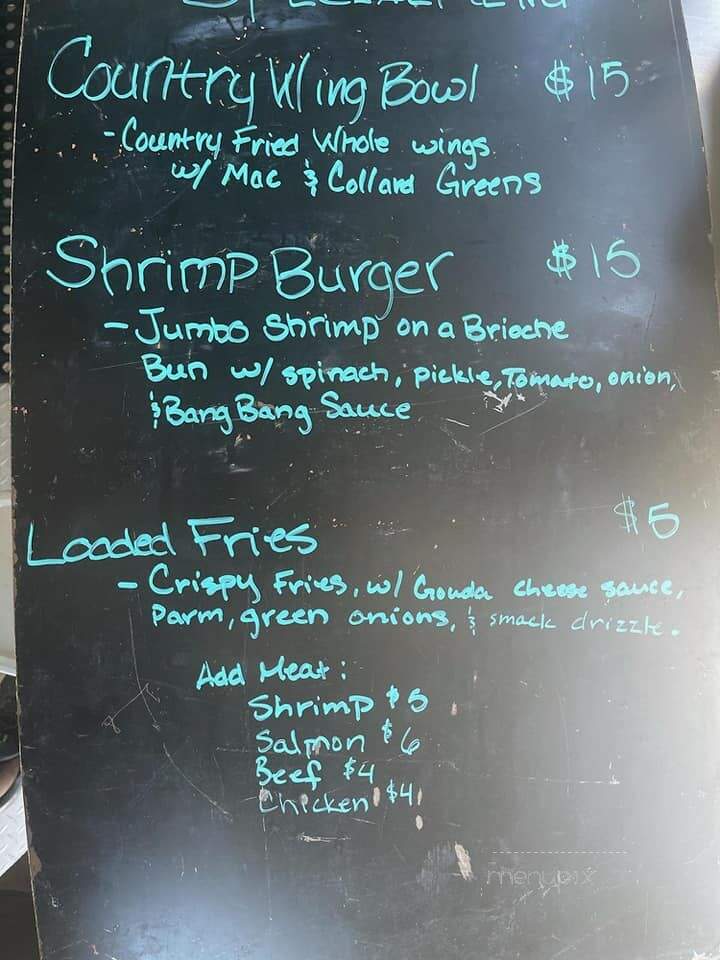 Country Wing Bowl $15
- Country Fried Whole wings
w/ Mac & Collard Greens
Shrimp Burger $15
- Jumbo Shrimp on a Brioche
Bun w/ spinach, pickle, Tomato, onion,
& Bang Bang Sauce
Loaded Fries $5
- Crispy Fries, w/ Gouda cheese sauce,
Parm, green onions, & smack drizzle.
Add Meat:
Shrimp $5
Salmon $6
Beef $4
Chicken $4
menupix